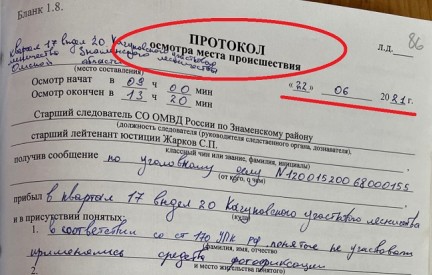 Бланк 1.8.
86
ПРОТОКОЛ
л.д.
осмотра места происшествия
квартал 17 выдел 20 Качуковского участкового
лесничества Знаменского лесничества
Омской области
(место составления)
« 22 » 06 2021 г.
Осмотр начат в 09 ч 00 мин
Осмотр окончен в 13 ч 20 мин
Старший следователь СО ОМВД России по Знаменскому району
(должность следователя (руководителя следственного органа, дознавателя),
старший лейтенант юстиции Жарков С.П.
классный чин или звание, фамилия, инициалы)
получив сообщение по уголовному делу N12001520068000155
(от кого, о чем)
прибыл в квартал 17 выдел 20 Качуковского участкового лесничества
(куда)
и в присутствии понятых:
1. в соответствии со ст 170 УПК РФ понятые не участвовали
(фамилия, имя, отчество
применялись средства фотофиксации
и место жительства понятого)
2.